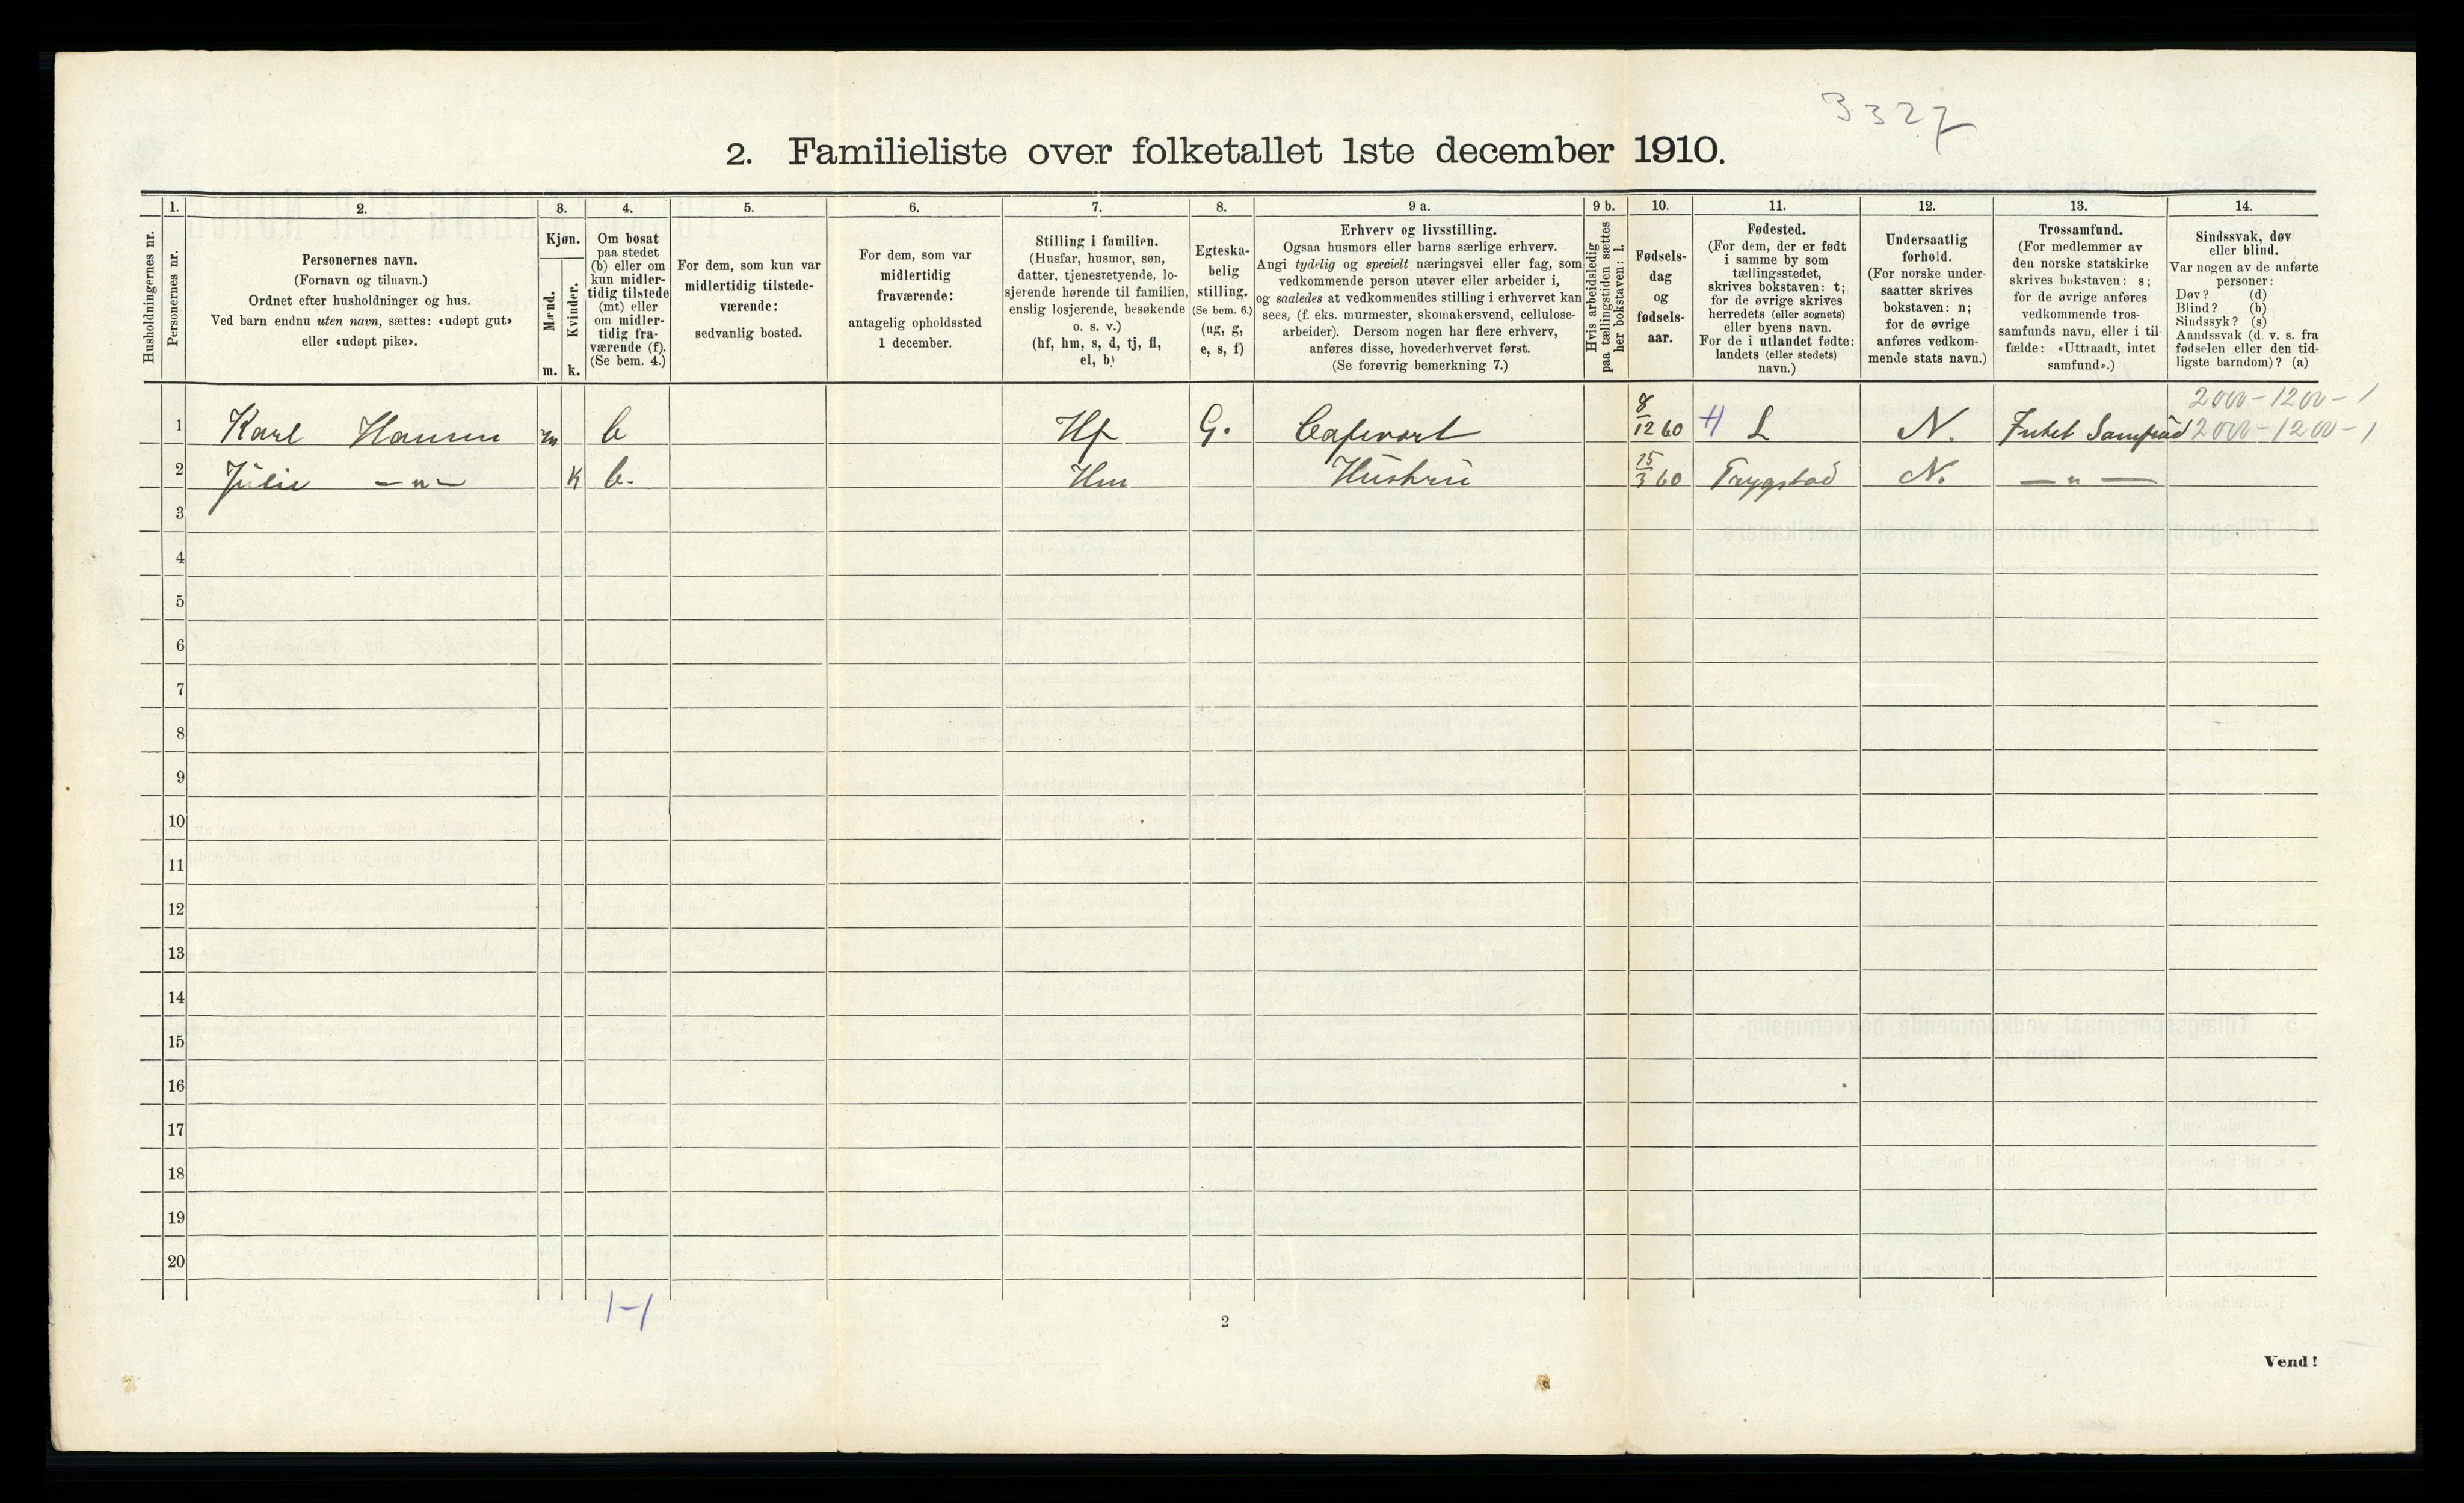 3327
2. Familieliste over folketallet 1ste december 1910.
Husholdningernes nr.
1. Personernes nr.
2. Personernes navn. (Fornavn og tilnavn.) Ordnet efter husholdninger og hus. Ved barn endnu uten navn, sættes: «udøpt gut» eller «udøpt pike».
3. Kjøn. Mænd. m. Kvinder. k.
4. Om bosat paa stedet (b) eller om kun midlertidig tilstede (mt) eller om midlertidig fraværende (f). (Se bem. 4.)
5. For dem, som kun var midlertidig tilstedeværende: sedvanlig bosted.
6. For dem, som var midlertidig fraværende: antagelig opholdssted 1 december.
7. Stilling i familien. (Husfar, husmor, søn, datter, tjenestetyende, losjerende hørende til familien, enslig losjerende, besøkende o. s. v.) (hf, hm, s, d, tj, fl, el, b)
8. Egteskabelig stilling. (Se bem. 6.) (ug, g, e, s, f)
9 a. Erhverv og livsstilling. Ogsaa husmors eller barns særlige erhverv. Angi tydelig og specielt næringsvei eller fag, som vedkommende person utøver eller arbeider i, og saaledes at vedkommendes stilling i erhvervet kan sees, (f. eks. murmester, skomakersvend, cellulosearbeider). Dersom nogen har flere erhverv, anføres disse, hovederhvervet først. (Se forøvrig bemerkning 7.)
9 b. Hvis arbeidsledig paa tællingstiden sættes her bokstaven: l.
10. Fødselsdag og fødselsaar.
11. Fødested. (For dem, der er født i samme by som tællingsstedet, skrives bokstaven: t; for de øvrige skrives herredets (eller sognets) eller byens navn. For de i utlandet fødte: landets (eller stedets) navn.)
12. Undersaatlig forhold. (For norske undersaatter skrives bokstaven: n; for de øvrige anføres vedkommende stats navn.)
13. Trossamfund. (For medlemmer av den norske statskirke skrives bokstaven: s; for de øvrige anføres vedkommende trossamfunds navn, eller i tilfælde: «Uttraadt, intet samfund».)
14. Sindssvak, døv eller blind. Var nogen av de anførte personer: Døv? (d) Blind? (b) Sindssyk? (s) Aandssvak (d. v. s. fra fødselen eller den tidligste barndom)? (a)
2000-1200-1
1 Karl Hansen m b Hf G. Cafevært 8/12 60 H N. Intet Samfund 2000-1200-1
2 Julie -„- K b. Hm Hustru 15/3 60 Trygstad N. -„-
3
4
5
6
7
8
9
10
11
12
13
14
15
16
17
18
19
20
1-1
2
Vend!